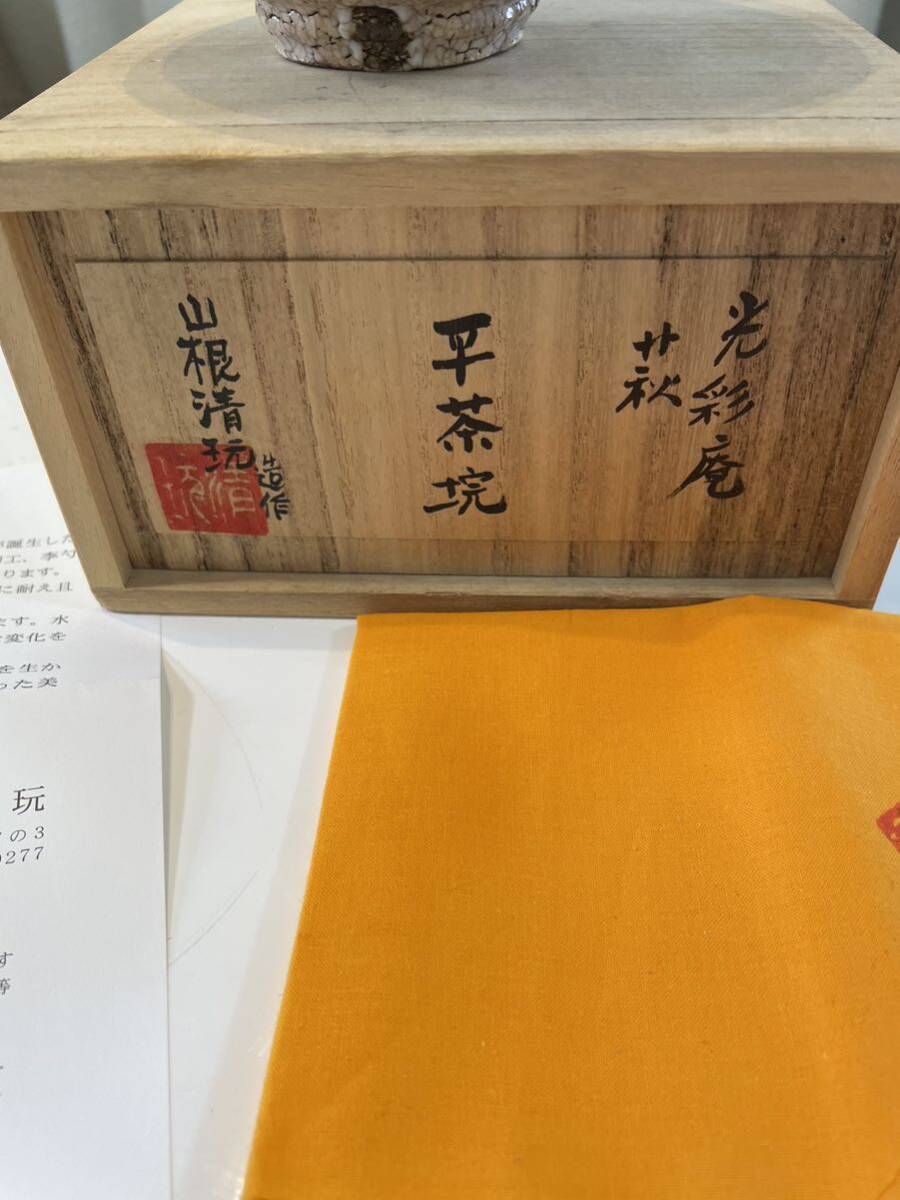 光彩庵
萩
平茶垸
山根清玩
造作
誕生した
工、李勺
ります。
に耐え且
す。水
変化を
を生か
った美
玩
の3
0277
す
等